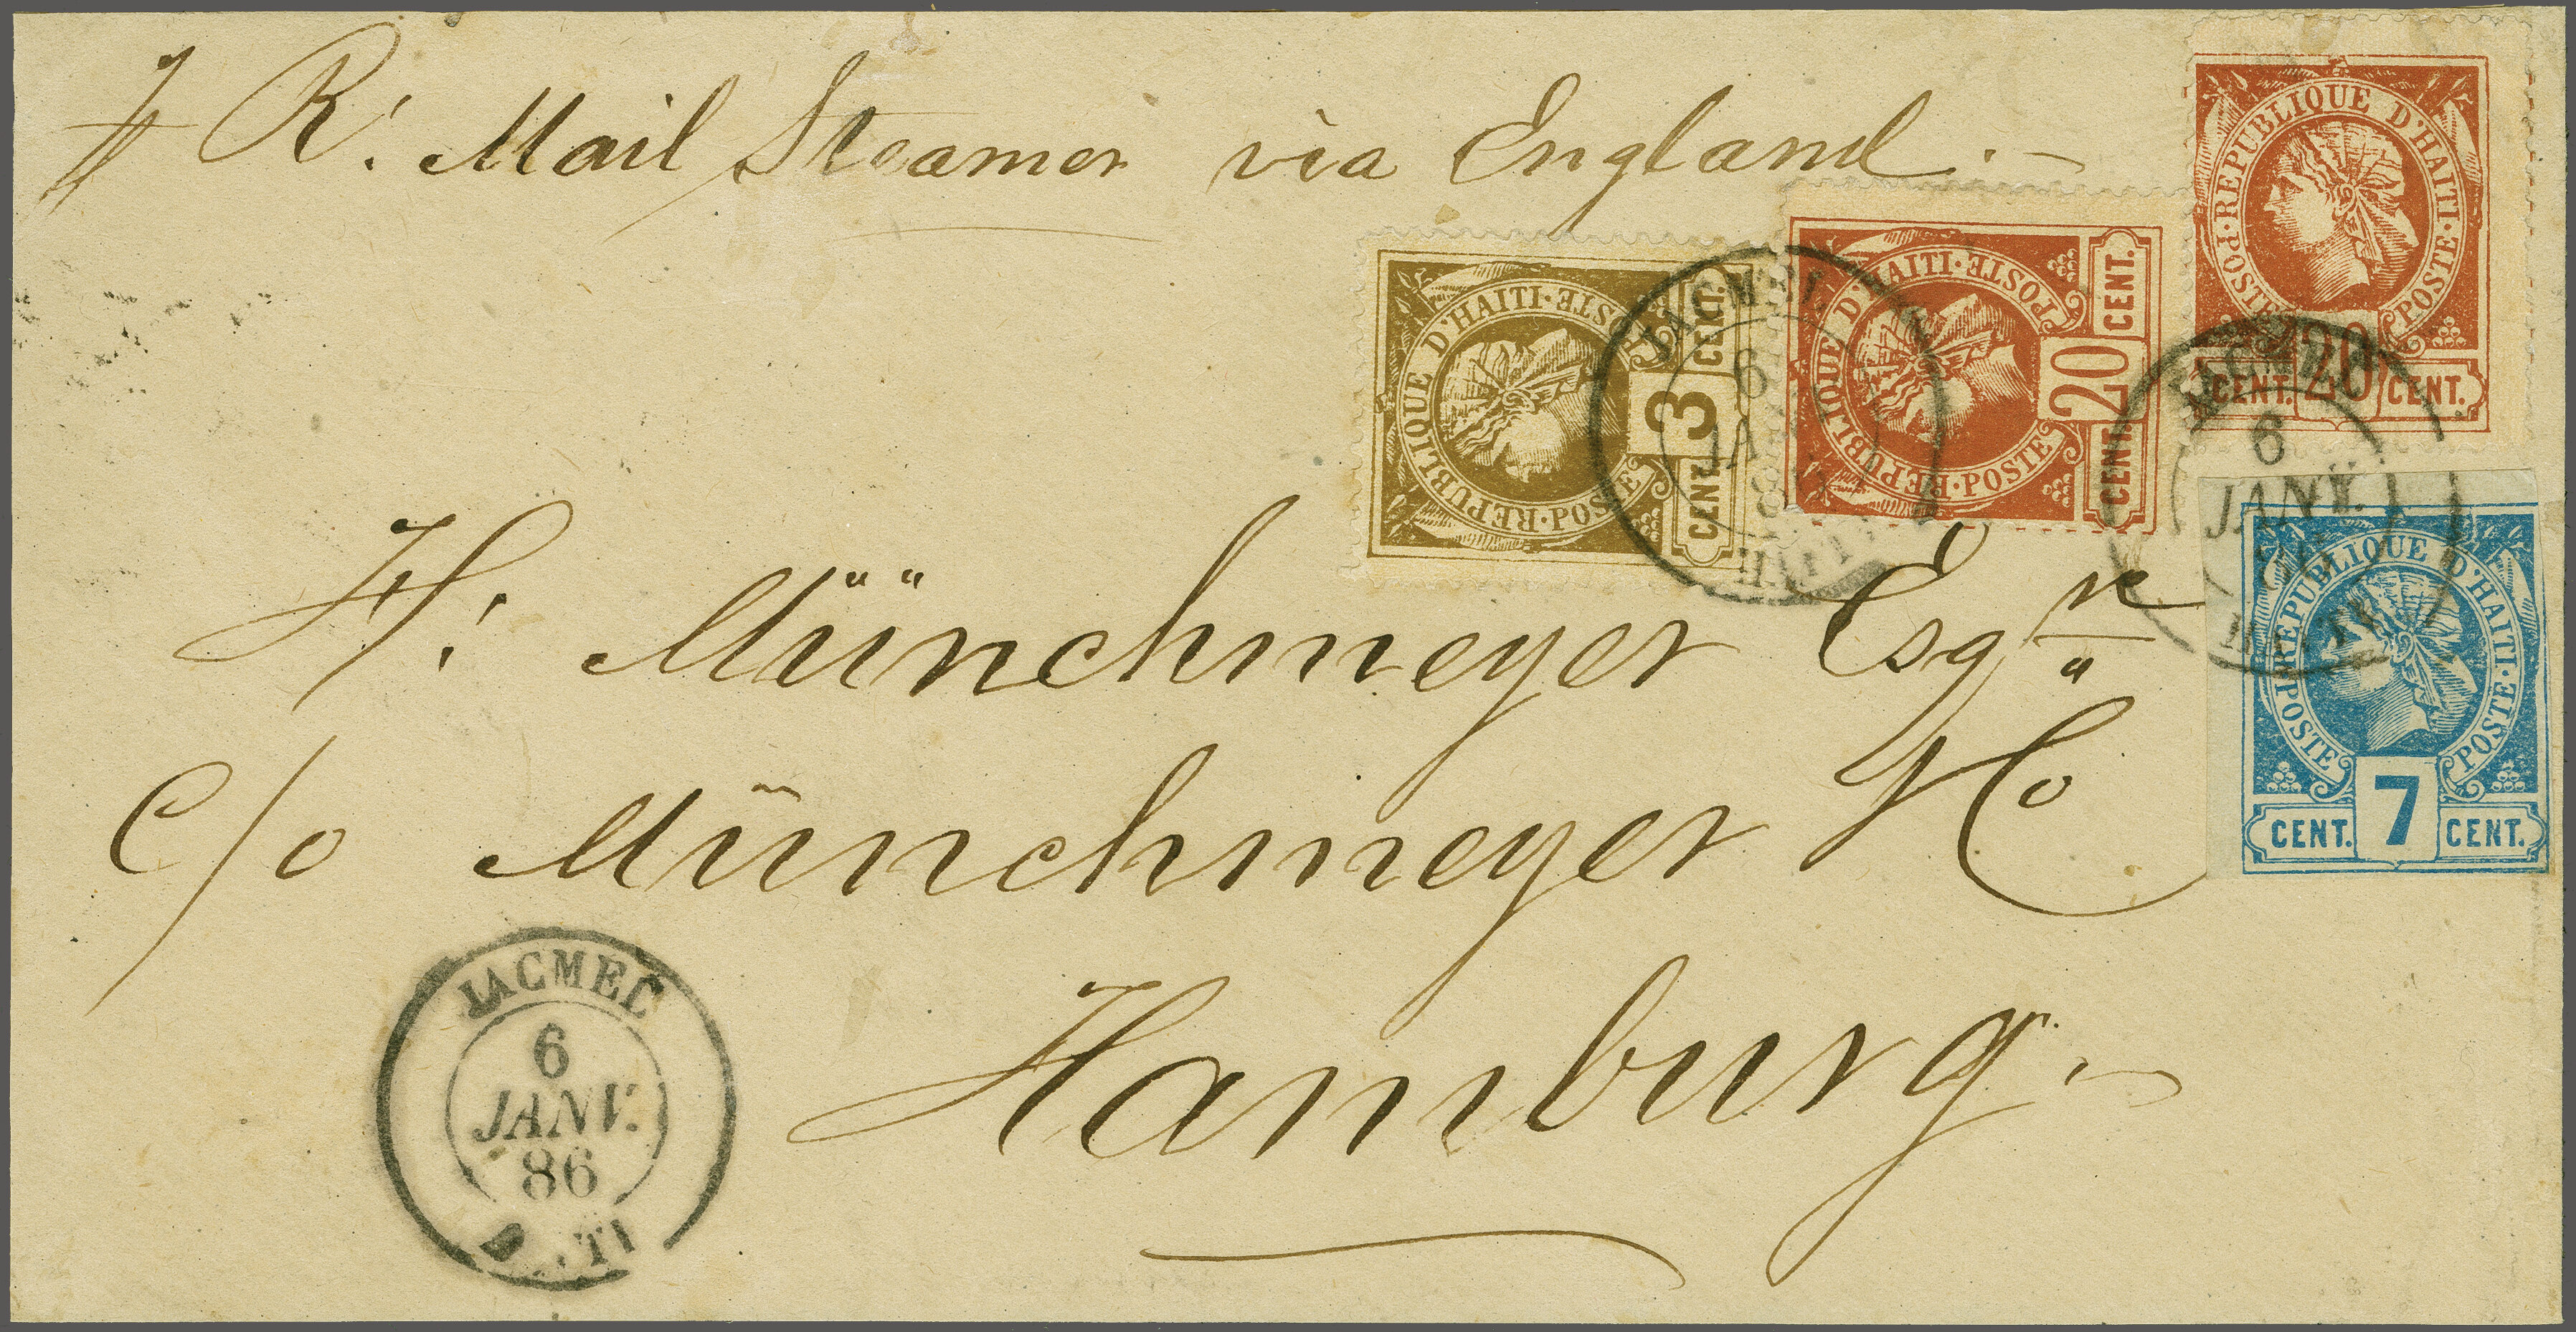 p R. Mail Steamer via England.—
REPUBLIQUE D'HAITI·POSTE
POSTE
CENT. 20 CENT.
REPUBLIQUE D'HAITI·POSTE
POSTE
CENT. 20 CENT.
REPUBLIQUE D'HAITI·POSTE
POSTE
CENT. 3 CENT.
JACMEL
6
JANV.
HAITI
JACMEL
6
JANV.
86
HAITI
REPUBLIQUE D'HAITI·POSTE
POSTE
CENT. 7 CENT.
H. Münchmeyer Esqre
C/o Münchmeyer & Co
Hamburg.—
JACMEL
6
JANV.
86